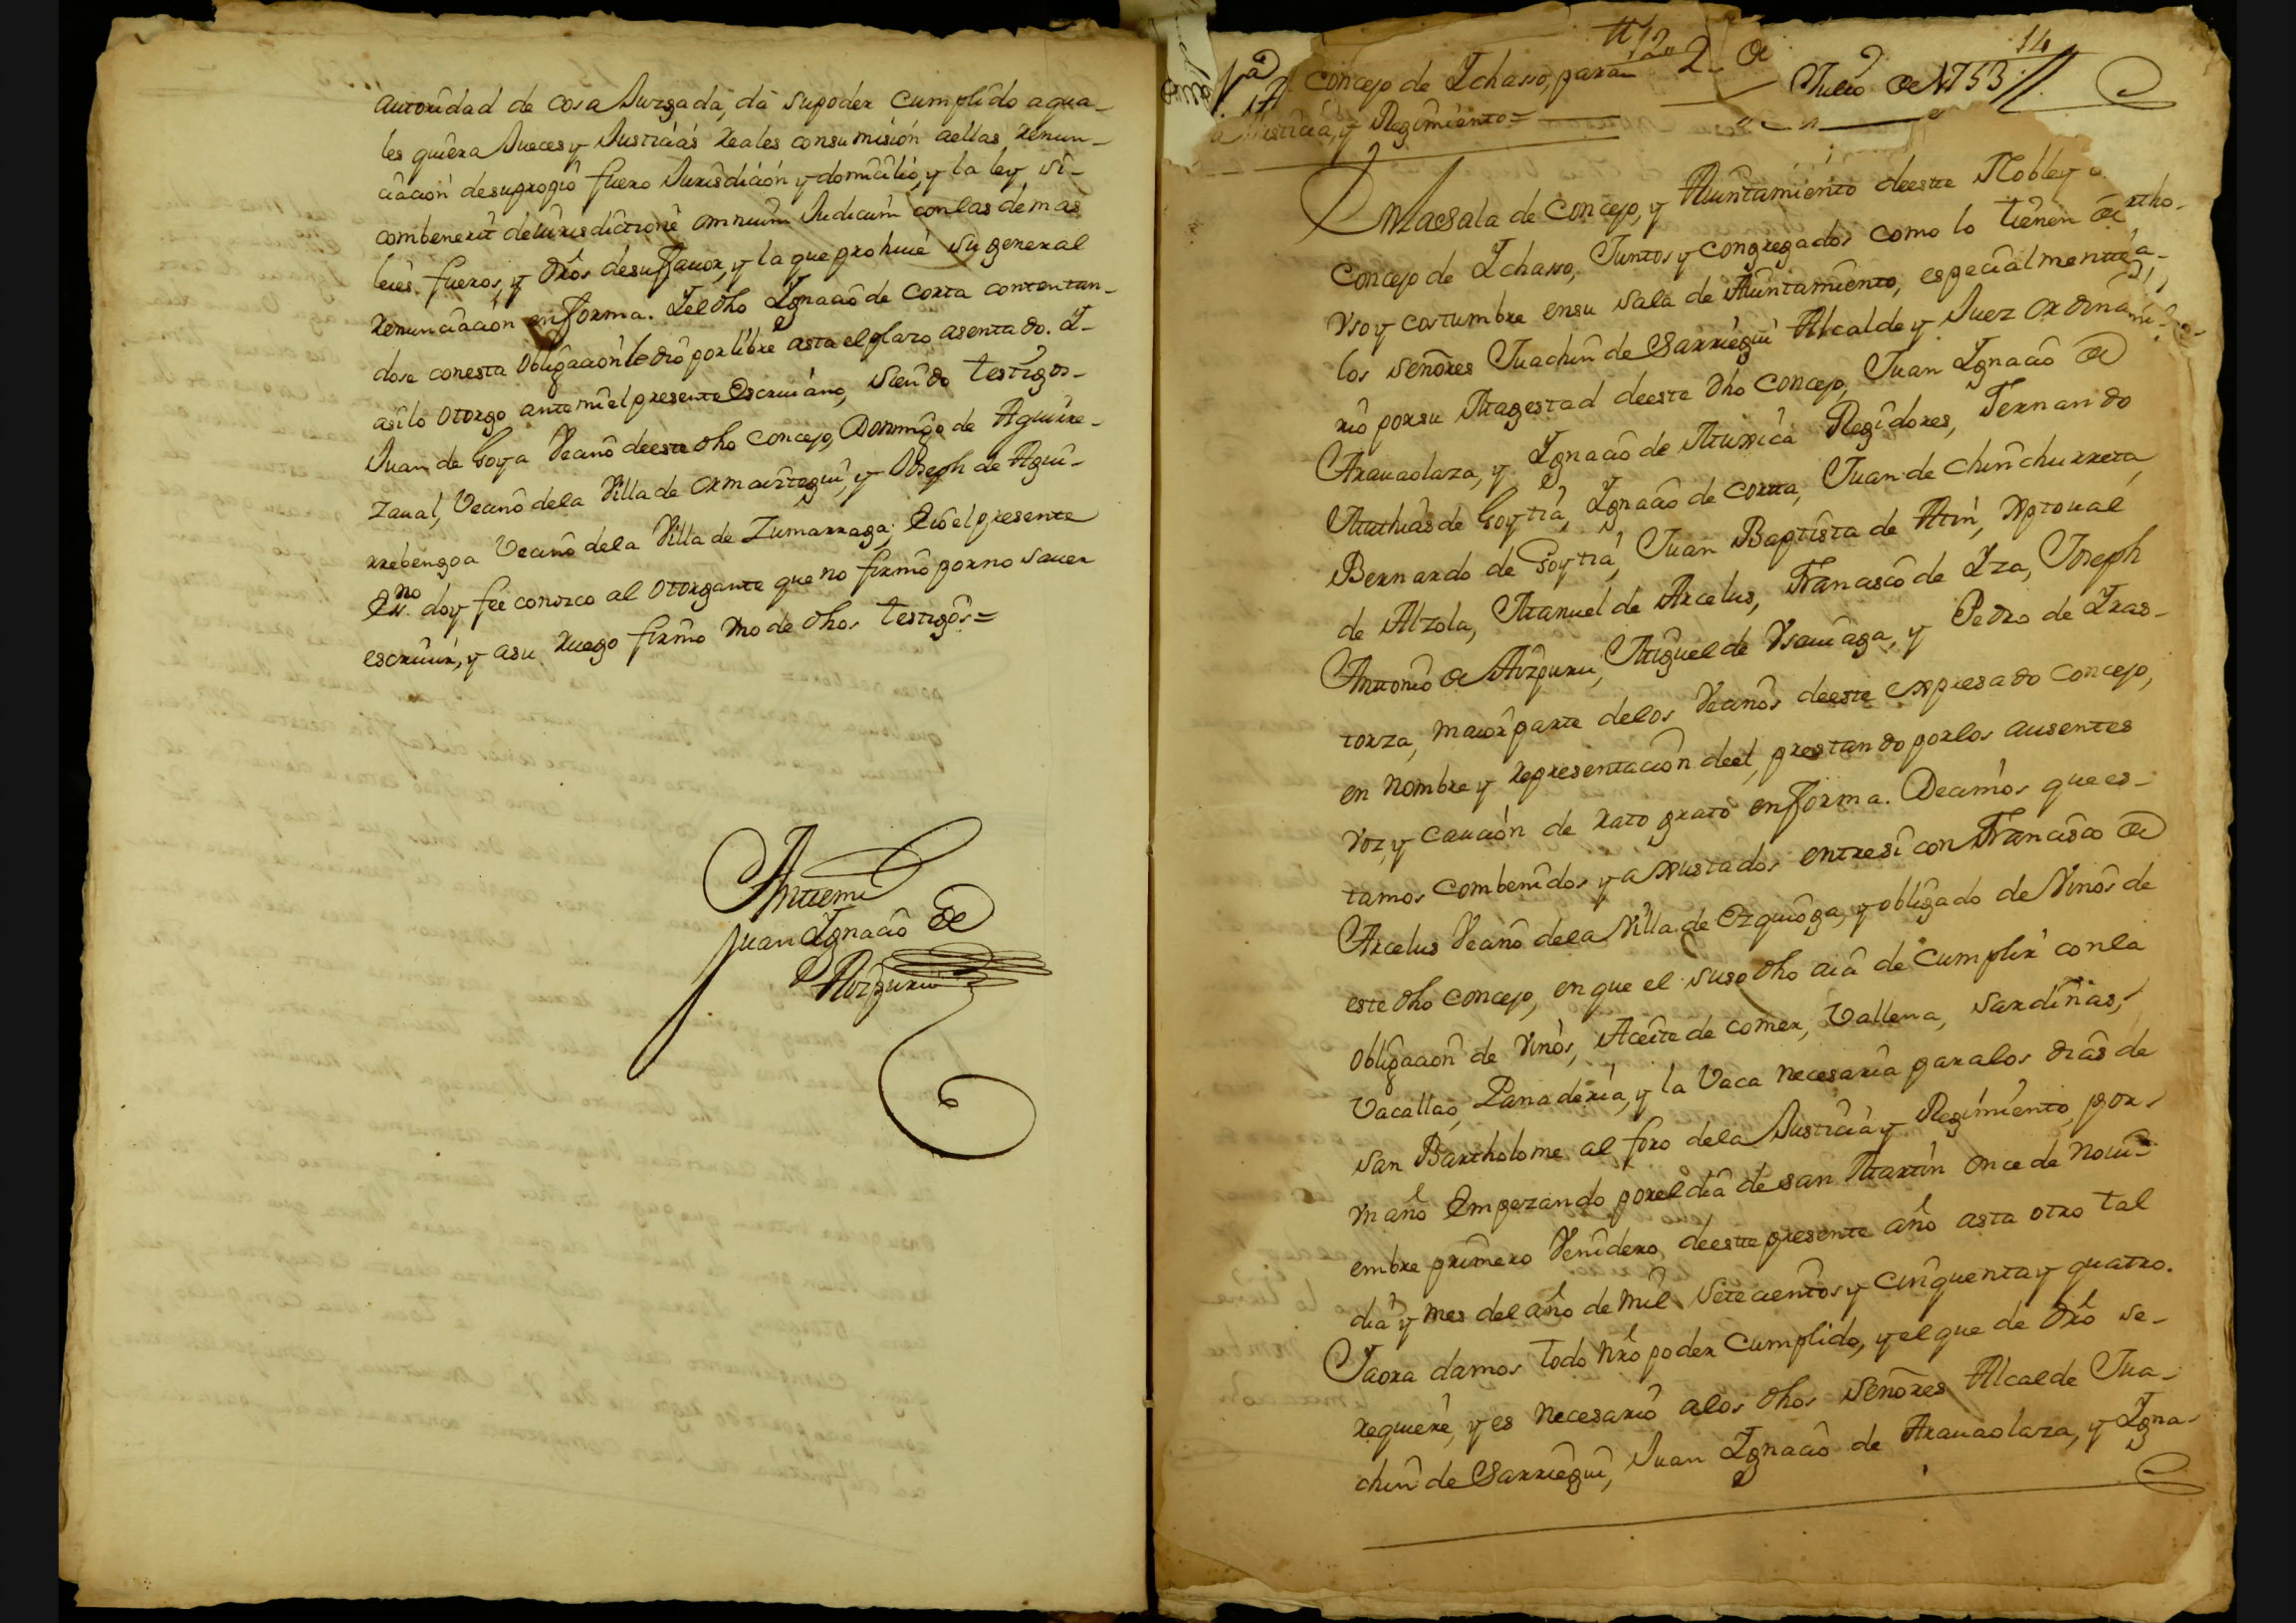 autoridad de cosa Juzgada, dà su poder Cumplido a qua-
les quiera Jueces y Justiciàs Reales con sumisión aellas, Renun-
ciación desu propio fuero Jurisdición y domicilio, y la ley si-
combenerit deiurisdictione omnium Judicum con las demas
leiès fueros, y drõs desu fauor, y la que prohiue su general
Renunciación en forma. I el dho Ignacio de Corta contentan-
dose con esta Obligacion le diò por libre asta el plazo asentado. I-
asi lo otorgo ante mi el presente Escriuano, siendo testigos-
Juan de Goya Vecino deeste dho Concejo, Domingo de Aguirre-
Zaual, Vecino dela Villa de Ormaiztegui, y Joseph de Agui-
rrebengoa Vecino dela Villa de Zumarraga; E io el presente
Ess.no doy fee conozco al Otorgante que no firmò por no sauer
escriuir, y asu ruego firmò vno de dhos testigos=
Ante mi
Juan Ignacio de
Aizpuru
Concejo de Ichasso, para
Justicia, y Regimiento=
2 de
Julio de 1753
14
En la Sala de Concejo, y Aiuntamiento deeste Noble y
Concejo de Ichasso, Juntos y congregados como lo tienen de
Vso y costumbre en su sala de Aiuntamiento, especialmente
los señores Juachin de Sarriegui Alcalde y Juez ordina-
rio por su Magestad deeste dho Concejo, Juan Ignacio de
Arauaolaza, y Ignacio de Regidores, Fernando
Mathias de Goytia, Ignacio de Corta, Juan de Chinchurreta,
Bernardo de Goytia, Juan Baptista de Atin, Xptoual
de Alzola, Manuel de Arcelus, Francisco de Iza, Joseph
Antonio de Aizpuru, Miguel de Vsauiaga, y Pedro de Iras-
torza, maior parte delos Vecinos deeste expresado Concejo,
en nombre y representación deel, prestando por los ausentes
voz, y caución de rato grato en forma. Decimos que es-
tamos combenidos y axustados entre si con Francisco de
Arcelus Vecino dela Villa de Ezquioga, y obligado de Vinos de
este dho Concejo, en que el suso dho aia de Cumplir con la
obligacion de Vinos, Aceite de comer, Vallena, Sardinas,
Vacallao, Panaderia, y la Vaca necesaria para los dias de
San Bartholome al foro dela Justicia y Regimiento, por
vn año Empezando por el dia de san Martin once de Noui-
embre primero Venidero, deeste presente año asta otro tal
dia y mes del año de mil Setecientos y Cinquenta y quatro.
I aora damos todo nrõ poder Cumplido, y el que de drõ se-
requiere, y es necesario a los dhos Señores Alcalde Jua-
chin de Sarriegui, Juan Ignacio de Arauaolaza, y Igna-